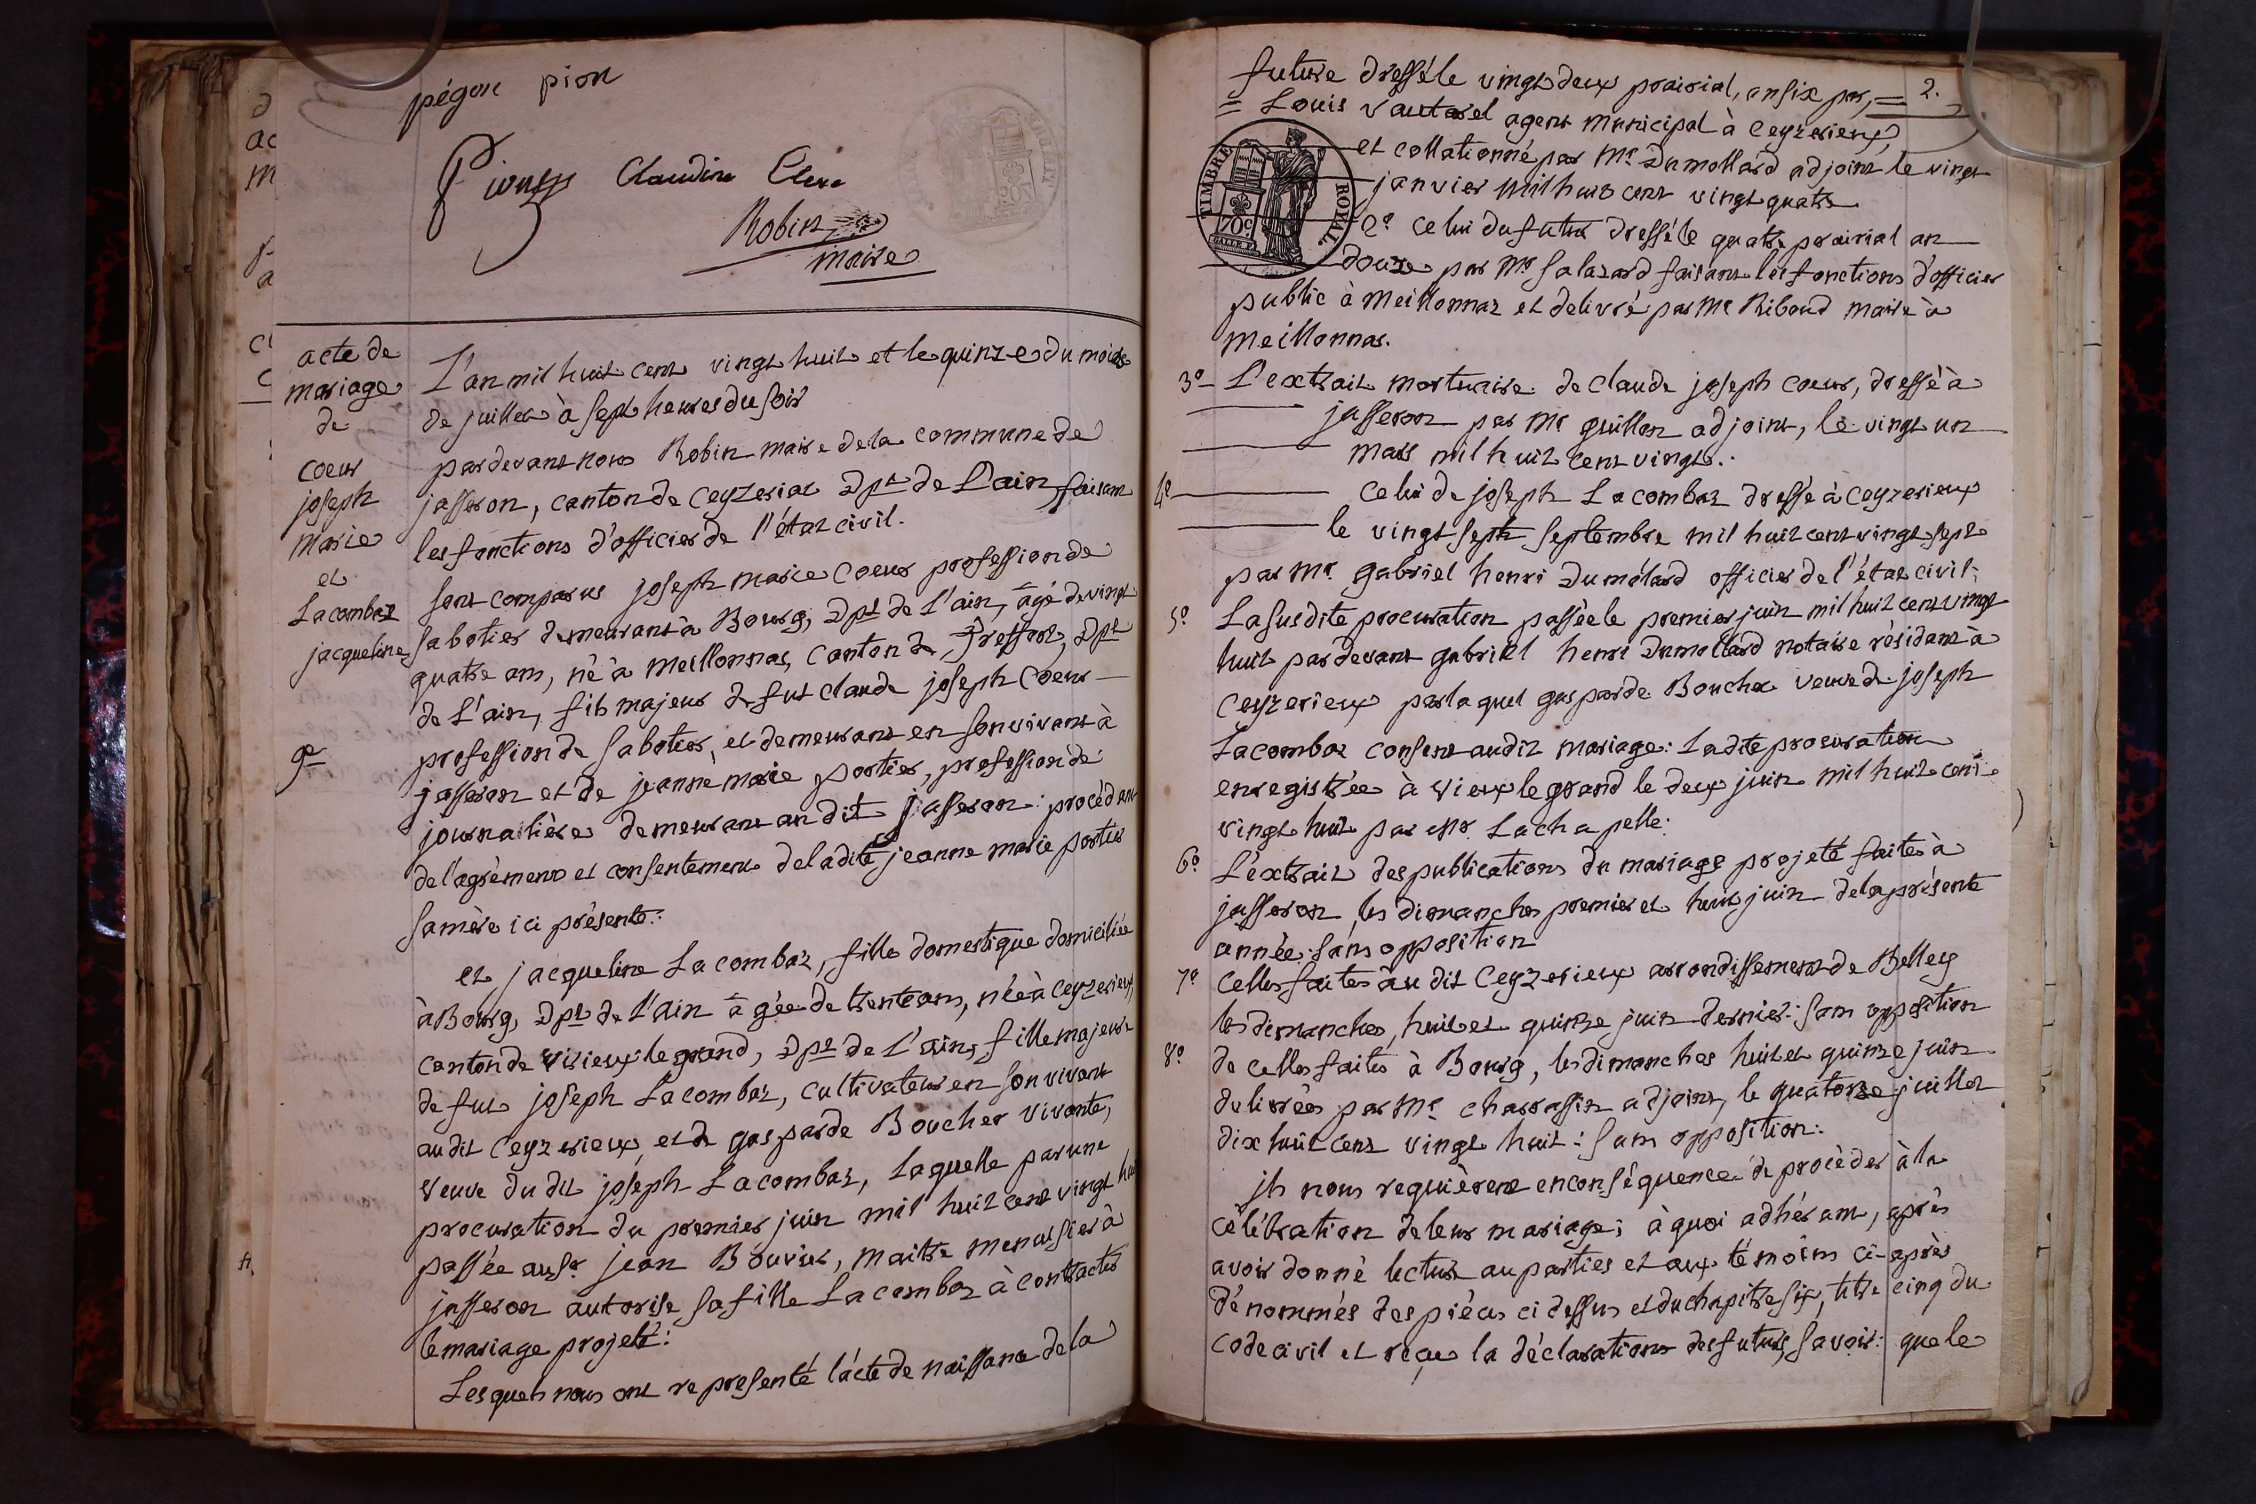 pégon pion
Claudine Clerc
Robin
maire
acte de
mariage
de
coeur
joseph
marie
et
Lacombaz
jacqueline
9e
L'an mil huit cent vingt huit et le quinze du mois
de juillet à sept heures du soir
pardevant nous Robin maire de la commune de
jasseron, canton de Ceyzeriat Dpt de L'ain, faisant
les fonctions d'officier de l'état civil.
sont comparus joseph marie coeur profession de
sabotier demeurant à Bourg, Dpt de L'ain, âgé de vingt
quatre ans, né à meillonnas, canton de Treffort, Dpt
de L'ain, fils majeur de fut claude joseph Coeur
profession de sabotier, et demeurant en son vivant à
jasseron et de jeanne marie portier, profession de
journalière demeurant au dit jasseron: procédant
de l'agrèment et consentement de la dite jeanne marie portier
sa mère ici présente:
et jacqueline Lacombaz, fille domestique domiciliée
à Bourg, Dpt de L'ain âgée de trente ans, née à Ceyzerieux,
canton de virieux le grand, Dpt de L'ain, fille majeure
de fut joseph Lacombaz, cultivateur en son vivant
au dit Ceyzerieux, et de gasparde Boucher vivante,
veuve du dit joseph Lacombaz, Laquelle par une
procuration du premier juin mil huit cent vingt huit
passée au Sr jean Bouvier, maitre menuisier à
jasseron autorise sa fille Lacombaz à contracter
le mariage projeté:
Lesquels nous ont representé l'acte de naissance de la
2.
future dressé le vingt deux prairial, an six par,
= Louis vautarel agent municipal à Ceyzerieux,
et collationné par Mr Dumollard adjoint le vingt
janvier mil huit cent vingt quatre
2o celui du futur dressé le quatre prairial an
douze par Mr salazard faisant les fonctions d'officier
public à Meillonnaz et delivré par Mr Riboud maire à
Meillonnas.
TIMBRE ROYAL
70c.
3o L'extrait mortuaire de claude joseph coeur, dressé à
jasseron par Mr guillon adjoint, le vingt un
mars mil huit cent vingt.
4o celui de joseph Lacombaz dressé à Ceyzerieux
le vingt sept septembre mil huit cent vingt sept
par Mr gabriel henri Dumólard officier de l'état civil;
5o La susdite procuration passée le premier juin mil huit cent vingt
huit pardevant gabriel henri Dumollard notaire résidant à
Ceyzerieux par laquel gasparde Boucher veuve de joseph
Lacombaz consent au dit mariage: La dite procuration
enregistrée à vieux le grand le deux juin mil huit cent
vingt huit par Mr Lachapelle:
6o L'éxtrait des publications du mariage projeté faites à
jasseron les dimanches premier et huit juin de la présente
année: sans opposition
7o Celles faites au dit Ceyzerieux arrondissement de Belley
les dimanches, huit et quinze juin dernier: sans opposition
8o de celles faites à Bourg, les dimanches huit et quinze juin
delivrées par Mr charassin adjoint, le quatorze juillet
dix huit cent vingt huit: sans opposition:
ils nous requièrent en conséquence de procèder à la
célébration de leur mariage; à quoi adhérant, après
avoir donné lecture au parties et aux témoins ci-après
dénommés des pièces ci dessus et du chapitre six, titre cinq du
code civil et reçu la déclarations des futurs, savoir: que le